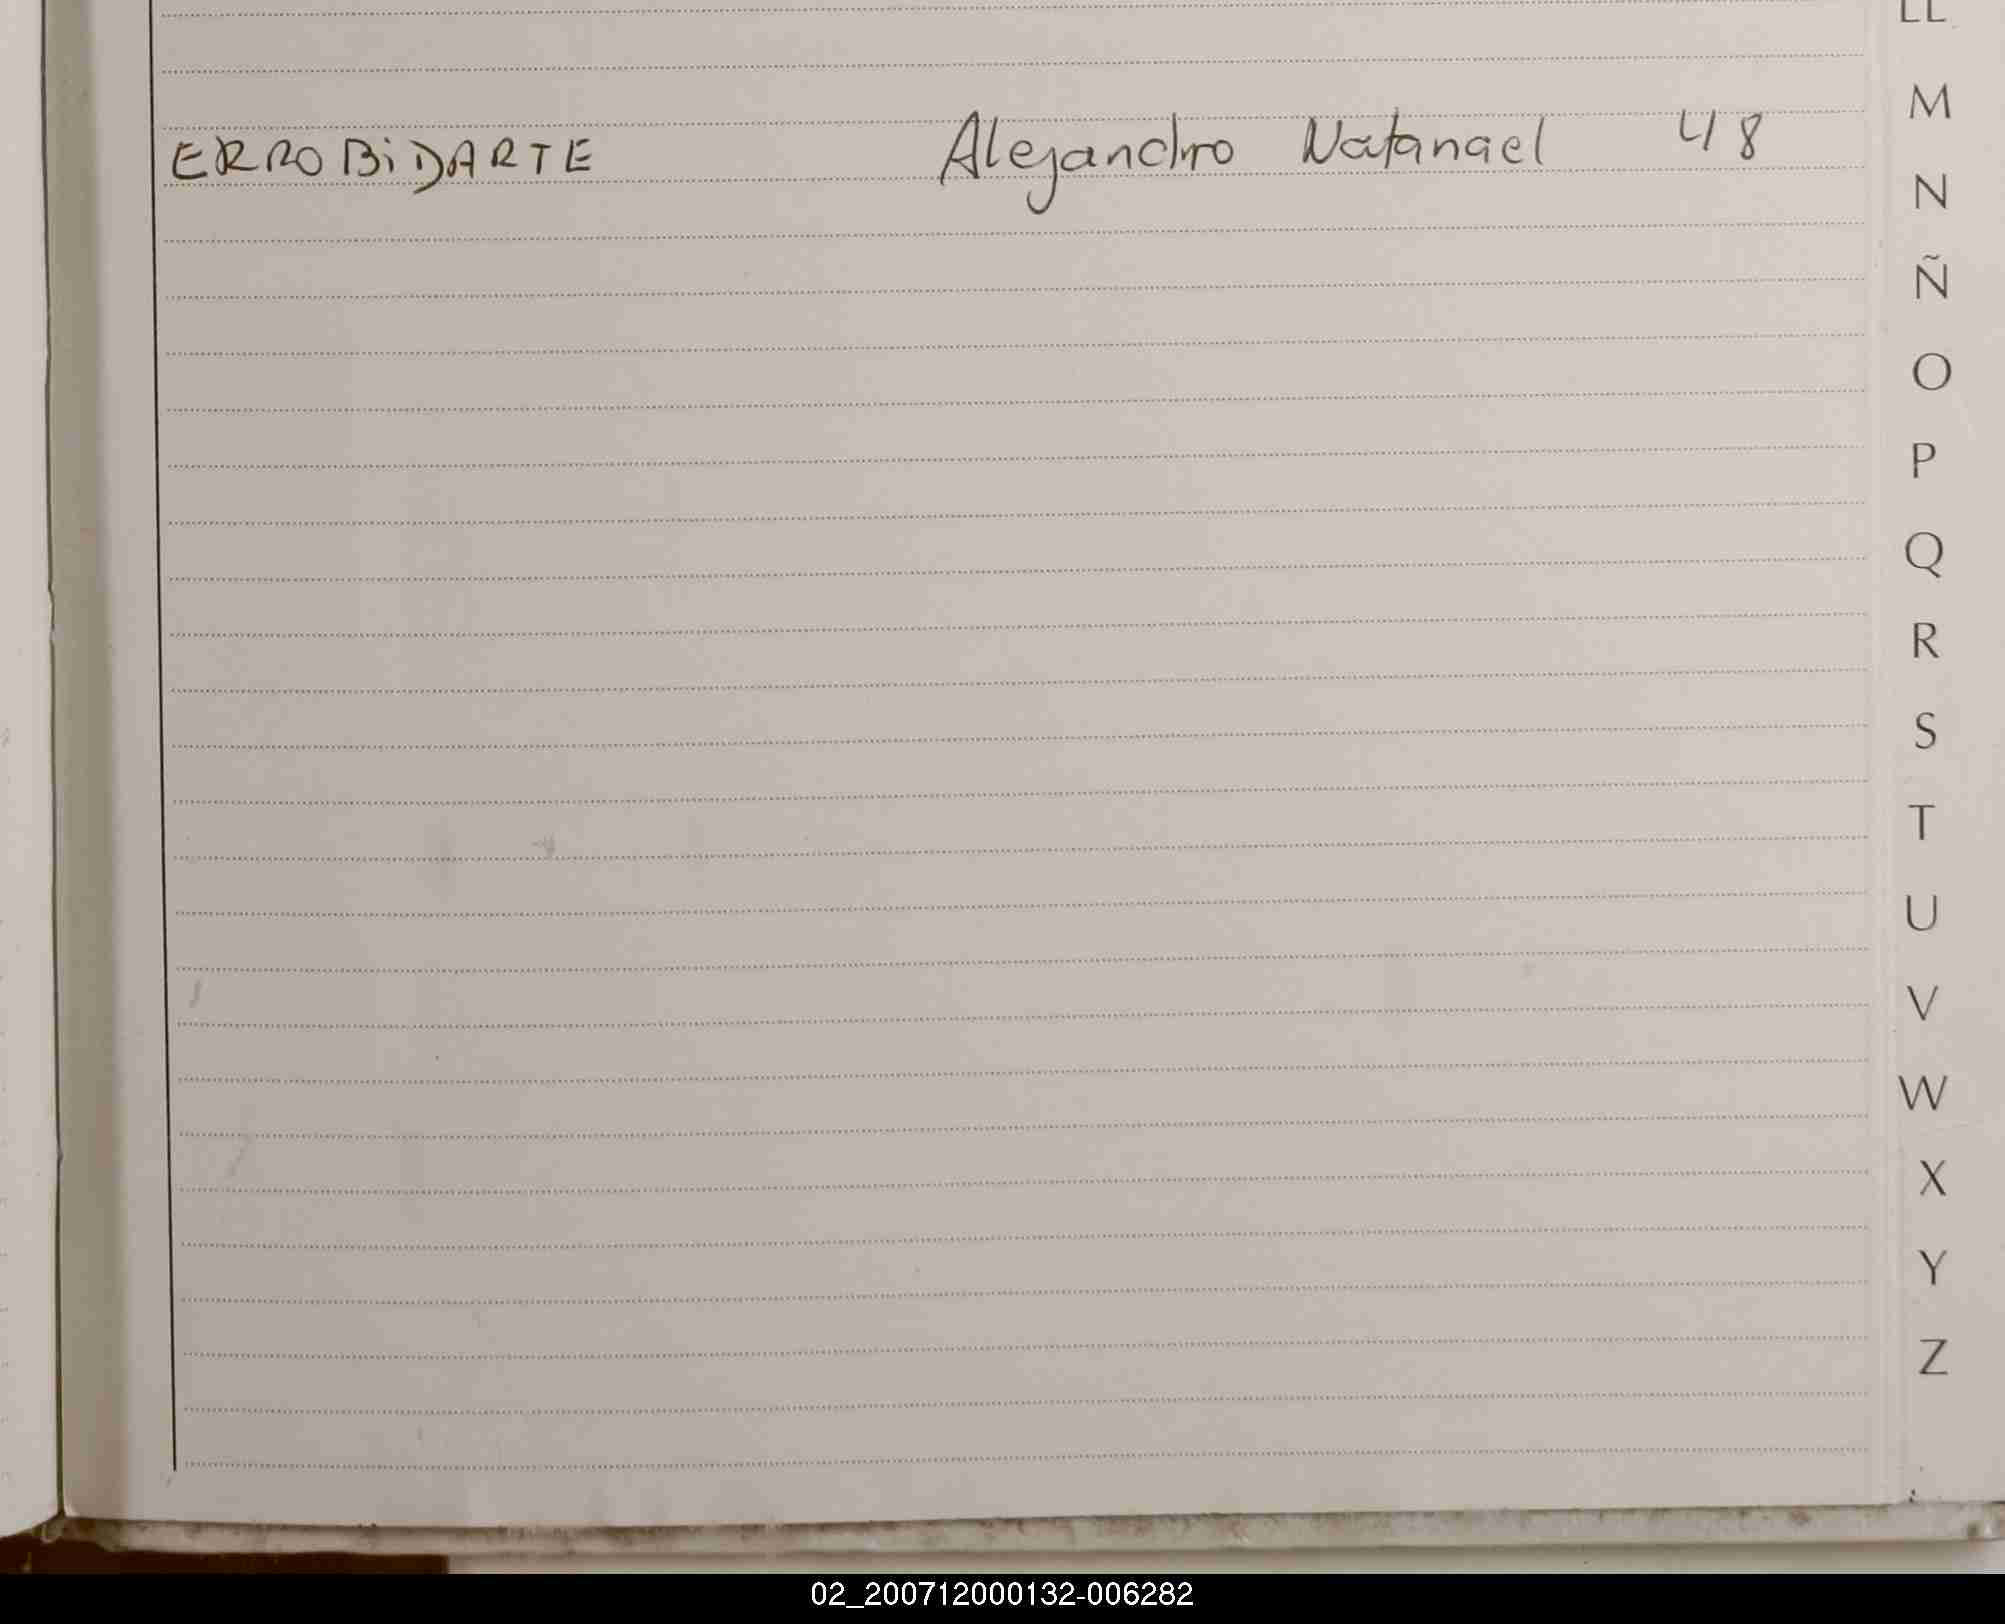 LL
ERRO BiDARTE Alejandro Natanael 48
M
N
Ñ
O
P
Q
R
S
T
U
V
W
X
Y
Z
02_200712000132-006282